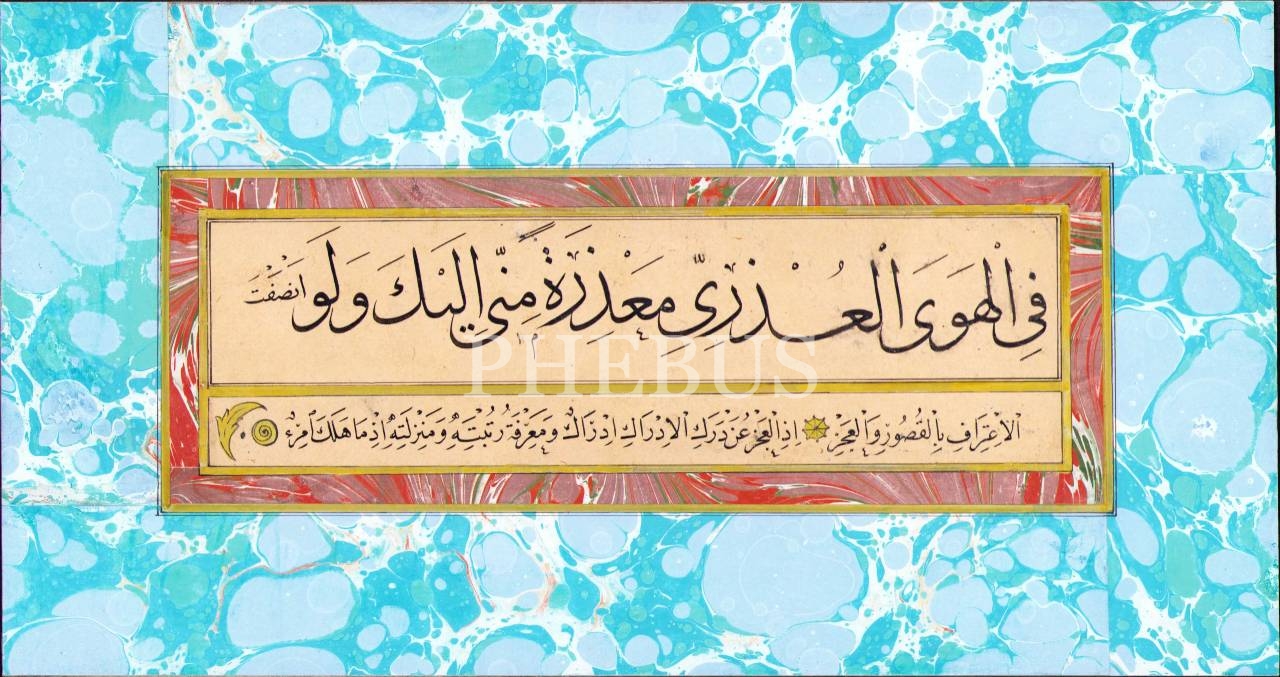 فِي الْهَوَى الْعُذْرِيِّ مَعْذِرَةً مِنِّي إِلَيْكَ وَلَوْ انصفت
PHEBUS
الاعتراف بالقصور والعجز اذ العجز عن درك الادراك ادراك ومعرفة رتبته ومنزلته اذ ما هلك امرء